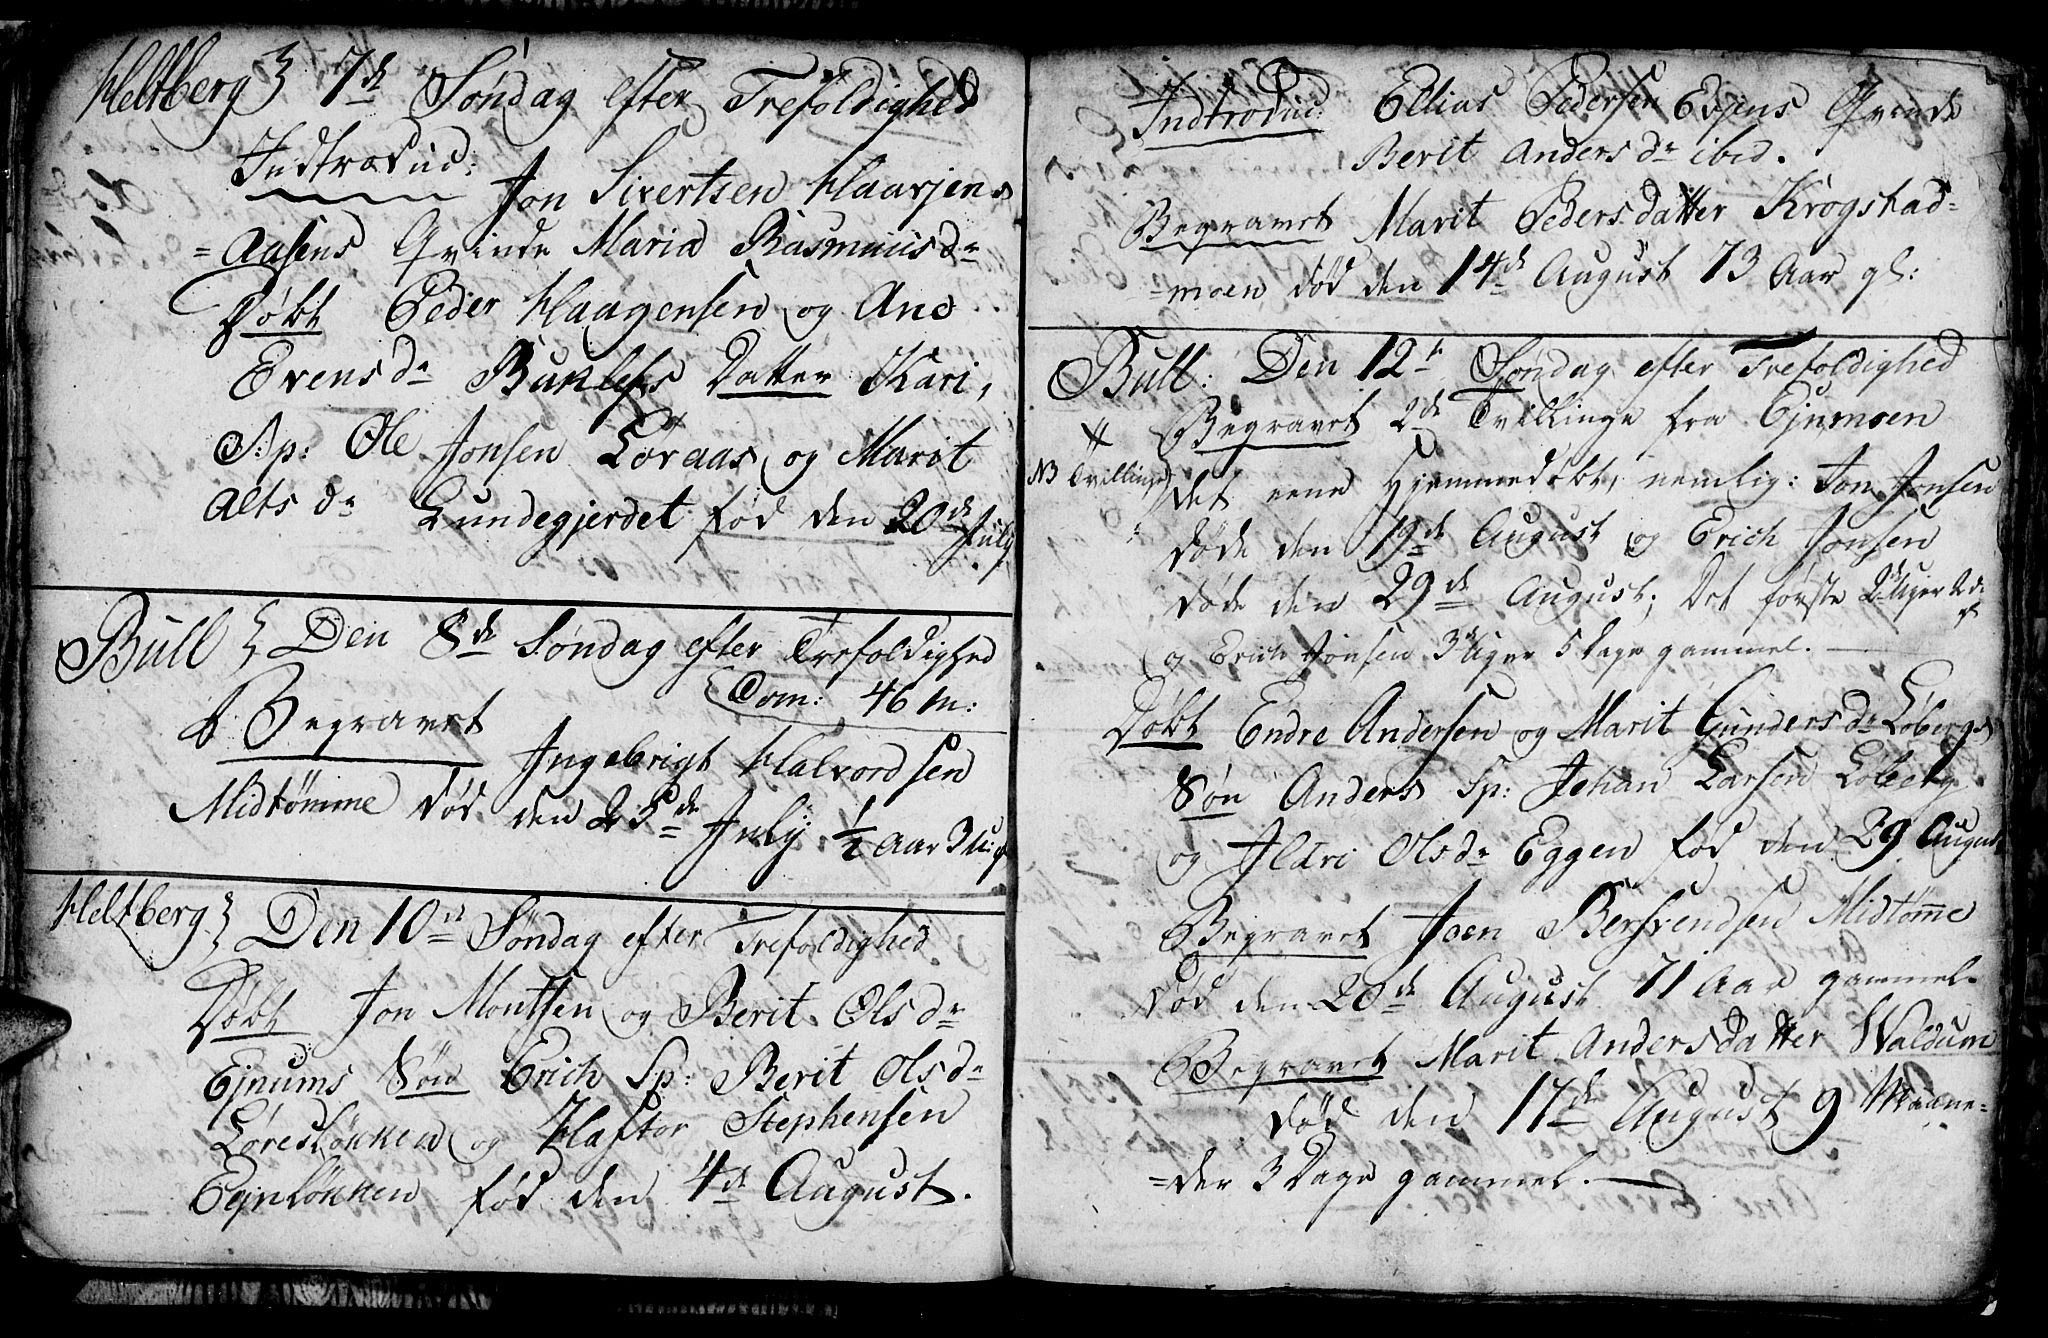 Heltberg } 7de Søndag efter Trefoldighed
Indtroduc:
Jon Sivertsen Haarjens
=Aasens Qvinde Maria Rasmuusdr
Døbt Peder Haagensen og Ane
Evensdr Buklefs Datter Kari,
S:p: Ole Jonsen Løraas og Marit
Altsdr Lundegjerdet fød den 20de July
Bull } Den 8de Søndag efter Trefoldighed
Com: 46 m:
Begravet Ingebrigt Halvordsen
Midtømme død den 25de July ½ Aar 3 u: g
Heltberg } Den 10de Søndag efter Trefoldighed
Døbt Jon Montsen og Berit Olsdr
Ejnums Søn Erich Sp: Berit Olsdr
Løresløkken og Haftor Stephensen
Ejnløkken fød den 4de August.
Indtroduc: Ellias Pedersen Evjens Qvinde
Berit Andersdr ibid.
Begravet Marit Pedersdatter Krogstad=
=moen død den 14de August 73 Aar gl:
Bull: Den 12te Søndag efter Trefoldighed
Begravet 2de Tvillinge fra Ejnmoen
NB Tvillinge
det eene Hjemmedøbt, nemlig: Jon Jonsen
døde den 19de August og Erich Jonsen
døde den 29de August; Det første 2de Uger 2 d:
og Erich Jonsen 3de Uger 5 Dage gammel.
Døbt Endre Andersen og Marit Gundersdr Løbergs
Søn Anders Sp: Johan Larsen Løberg
og Ildri Olsdr Eggen fød den 29 August
Begravet Joen Bersvendsen Midtømme
død den 20de August 71 Aar gammel.
Begravet Marit Andersdatter Waldum
død den 17de August 9 Maane=
=der 3 Dage gammel.